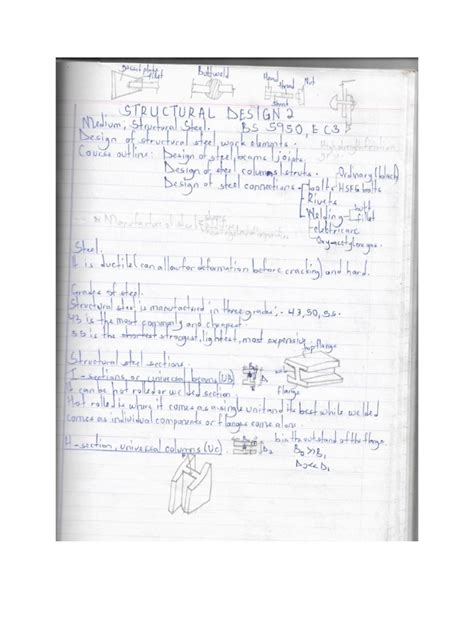 Gusset plate
fillet
Buttweld
Head
Thread
Nut
Shank
STRUCTURAL DESIGN 2
Medium, Structural Steel. BS 5950, EC3
Design of structural steel work elements.
Course outline: Design of steel beams/joists.
Design of steel columns/struts.
Design of steel connections
bolts
Ordinary (black)
HSFG bolts
Rivets
Welding
butt
fillet
electric arc
Oxy-acetylene gas.
Steel.
It is ductile (can allow for deformation before cracking) and hard.
Grades of steel.
Structural steel is manufactured in three grades; - 43, 50, 55.
43 is the most commonly and cheapest.
55 is the strongest, lightest, most expensive
top flange
Structural steel sections.
I - sections, or universal beams (UB)
D₁
flange
It can be hot rolled or welded section
Hot rolled is where it comes as a single unit and the best while welded
comes as individual components or flanges come alone.
H - section, universal columns (UC)
D₂
b is the outstand of the flange.
B₂ >> B₁
D₂ << D₁